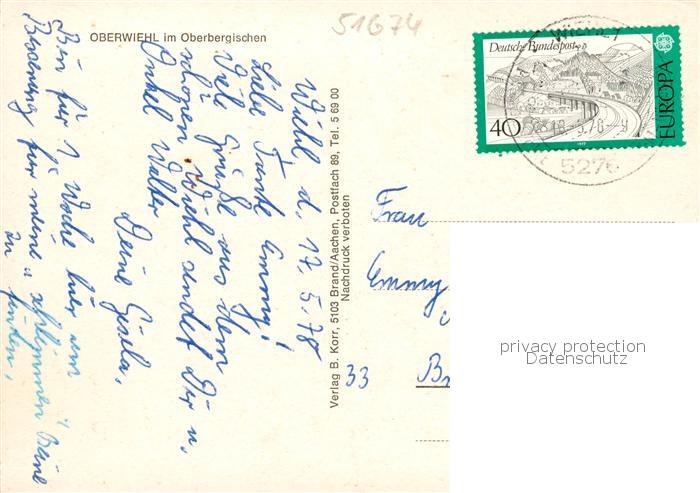 51674
OBERWIEHL im Oberbergischen
Wiehl d. 17.5.78
Liebe Tante Emmy!
Viele Grüße aus dem
schönen Wiehl sendet Dir u.
Onkel Walter
Deine Gisela.
Bin für 1 Woche hier um
Besserung für meine "schlimmen" Beine
zu finden.
Verlag B. Korr, 5103 Brand/Aachen, Postfach 89, Tel. 5 69 00
Nachdruck verboten
Deutsche Bundespost
40
EUROPA
1977
18.5.78-9
5276
Frau
Emmy
33
privacy protection
Datenschutz